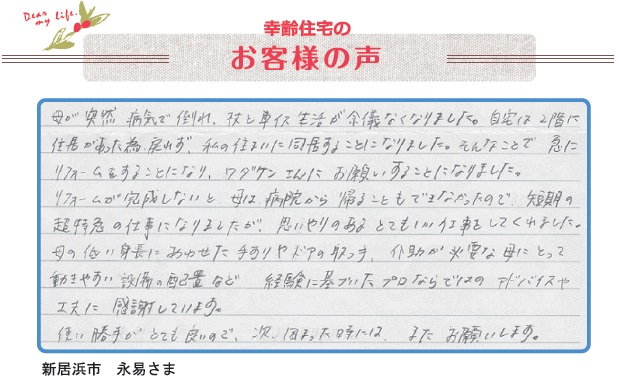 Dear my life.
幸齢住宅の
お客様の声
母が突然 病気で倒れ、杖と車イス生活が余儀なくなりました。自宅は2階に
住居があった為、戻れず、私の住まいに同居することになりました。そんなことで 急に
リフォームをすることになり、ワダケンさんに お願いすることになりました。
リフォームが完成しないと、母は、病院から 帰ることもできなかったので、短期の
超特急の仕事になりましたが、思いやりのある とてもいい仕事をしてくれました。
母の低い身長にあわせた 手すりやドアの取っ手、介助が必要な母にとって
動きやすい 設備の配置など 経験に基づいたプロならではの アドバイスや
工夫に 感謝しています。
使い勝手が とても良いので、次、困った時には、また お願いします。
新居浜市 永易さま